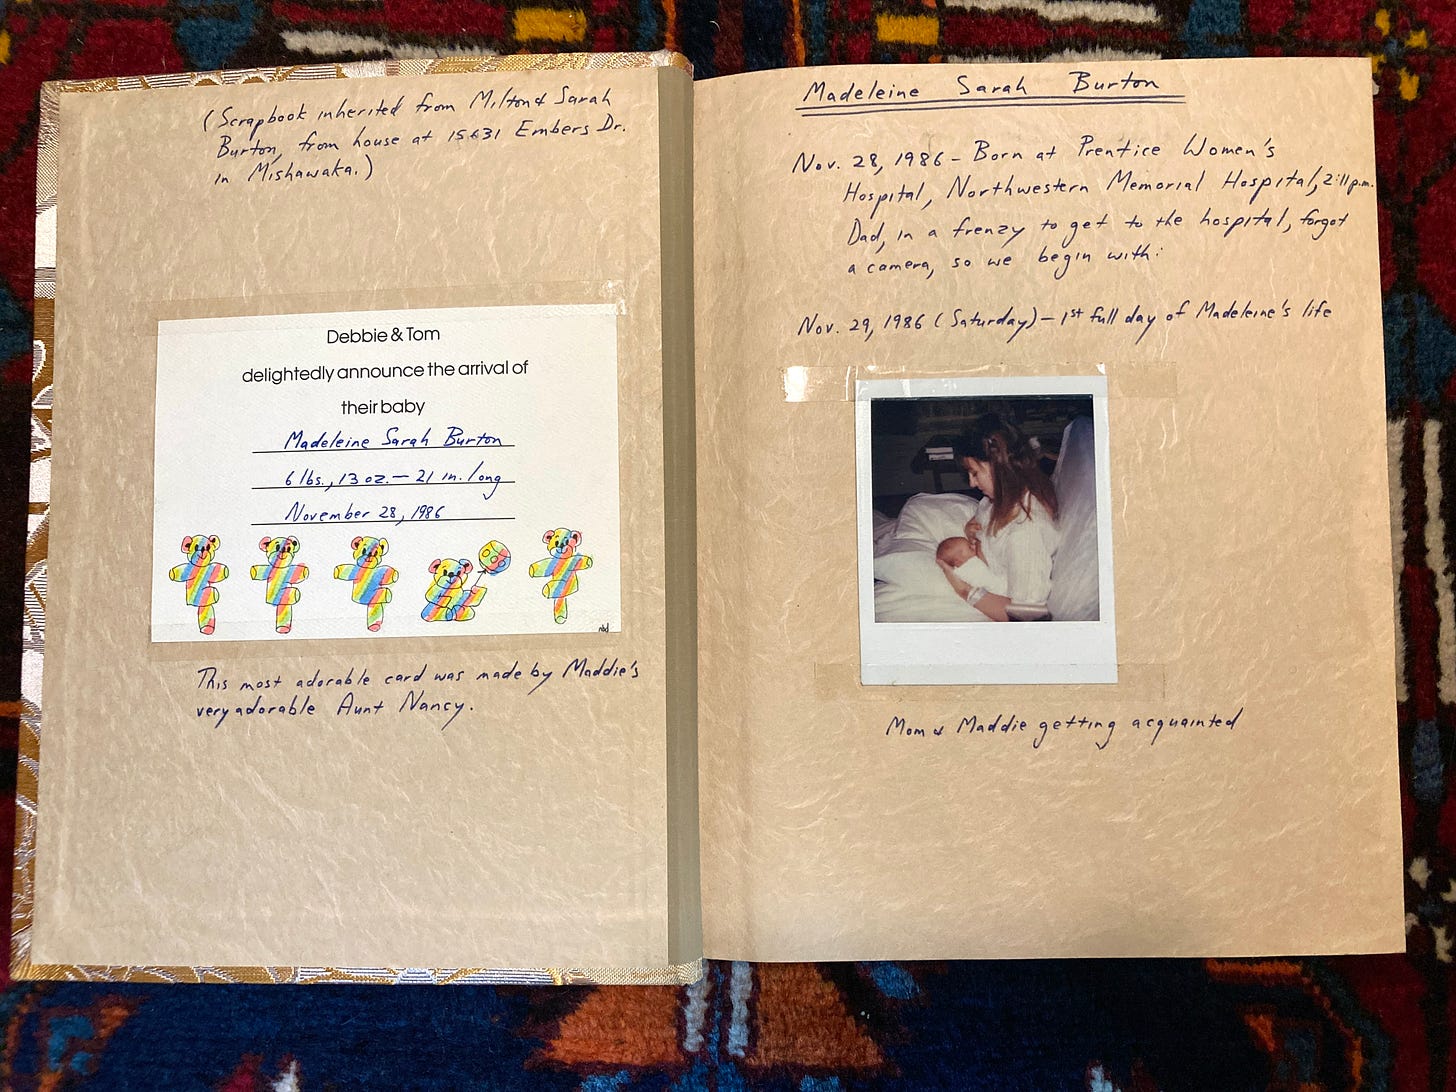 (Scrapbook inherited from Milton & Sarah
Burton, from house at Embers Dr.
in Mishawaka.)
Debbie & Tom
delightedly announce the arrival of
their baby
Madeleine Sarah Burton
6 lbs., 13 oz. — 21 in. long
November 28, 1986
This most adorable card was made by Maddie's
very adorable Aunt Nancy.
Madeleine Sarah Burton
Nov. 28, 1986 - Born at Prentice Women's
Hospital, Northwestern Memorial Hospital, 2:11 p.m.
Dad, in a frenzy to get to the hospital, forgot
a camera, so we begin with:
Nov. 29, 1986 (Saturday) - 1st full day of Madeleine's life
Mom & Maddie getting acquainted